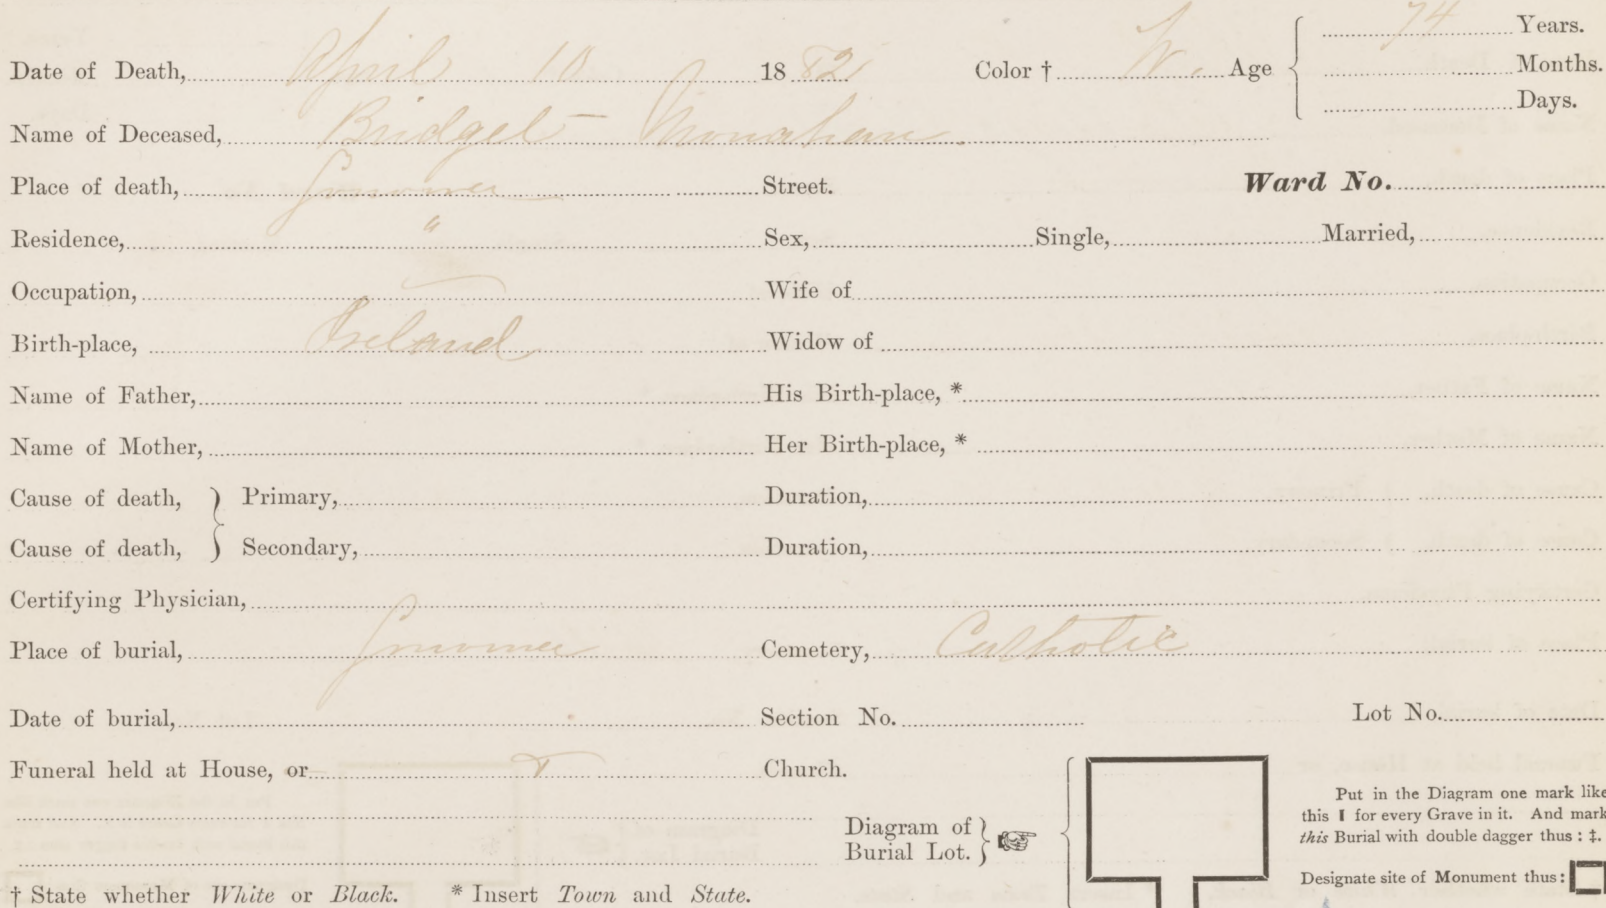 Date of Death, April 10 1882 Color † W. Age 74 Years.
Months.
Days.
Name of Deceased, Bridget Monahan
Place of death, Street. Ward No.
Residence, " Sex, Single, Married,
Occupation, Wife of
Birth-place, Ireland Widow of
Name of Father, His Birth-place, *
Name of Mother, Her Birth-place, *
Cause of death, } Primary, Duration,
Cause of death, } Secondary, Duration,
Certifying Physician,
Place of burial, Cemetery, Catholic
Date of burial, Section No. Lot No.
Funeral held at House, or Church.
Diagram of Burial Lot.
Put in the Diagram one mark like
this I for every Grave in it. And mark
this Burial with double dagger thus : ‡.
Designate site of Monument thus :
† State whether White or Black. * Insert Town and State.